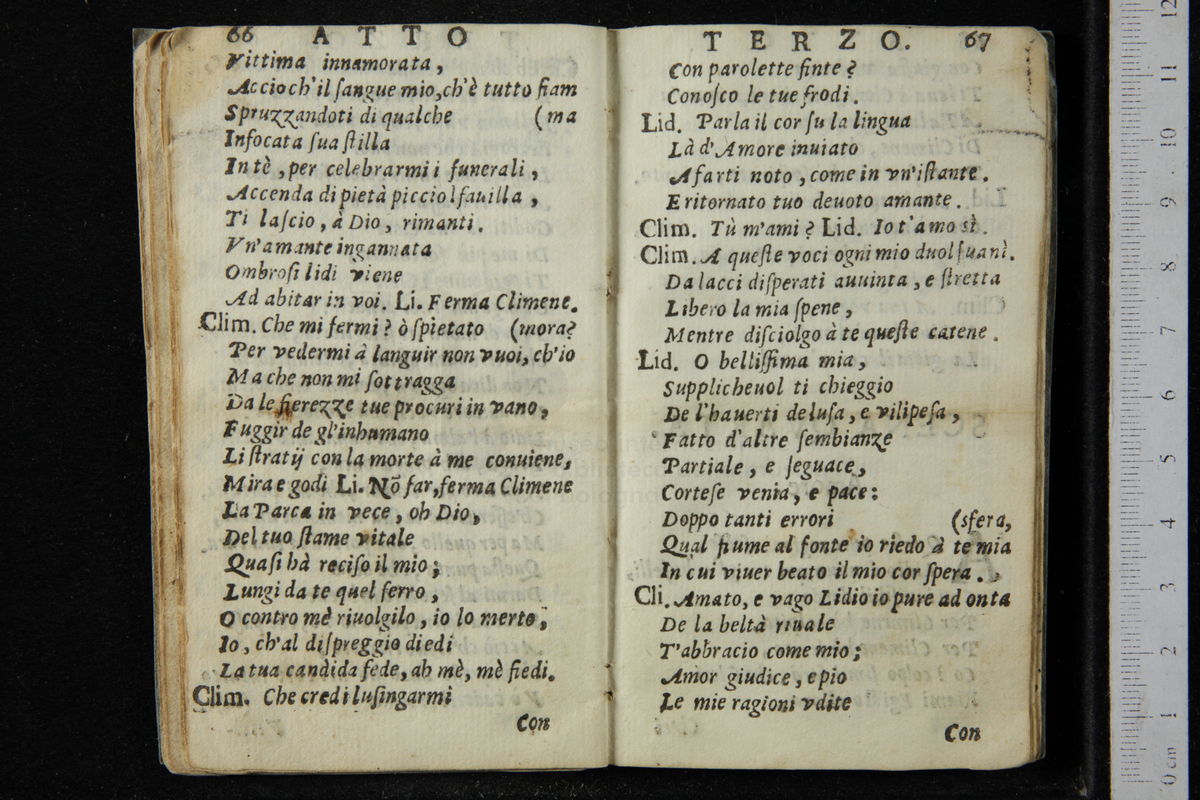 66 ATTO
Vittima innamorata,
Accioch'il ſangue mio,ch'è tutto fiam
Spruzzandoti di qualche (ma
Infocata ſua ſtilla
In tè, per celebrarmi i funerali,
Accenda di pietà picciol fauilla,
Ti laſcio, à Dio, rimanti.
Vn'amante ingannata
Ombroſi lidi viene
Ad abitar in voi. Li. Ferma Climene.
Clim. Che mi fermi? ò ſpietato (mora?
Per vedermi à languir non vuoi, ch'io
Ma che non mi ſottragga
Da le fierezze tue procuri in vano,
Fuggir de gl'inhumano
Li ſtratij con la morte à me conuiene,
Mira e godi Li. Nõ far, ferma Climene
La Parca in vece, oh Dio,
Del tuo ſtame vitale
Quaſi hà reciſo il mio;
Lungi da te quel ferro,
O contro mè riuolgilo, io lo merto,
Io, ch'al diſpreggio diedi
La tua candida fede, ah mè, mè fiedi.
Clim. Che credi luſingarmi
Con
TERZO. 67
Con parolette finte?
Conoſco le tue frodi.
Lid. Parla il cor ſu la lingua
Là d'Amore inuiato
A farti noto, come in vn'iſtante.
E ritornato tuo deuoto amante.
Clim. Tù m'ami? Lid. Io t'amo sì.
Clim. A queſte voci ogni mio duol ſuanì.
Da lacci diſperati auuinta, e ſtretta
Libero la mia ſpene,
Mentre diſciolgo à te queſte catene.
Lid. O belliſſima mia,
Supplicheuol ti chieggio
De l'hauerti deluſa, e vilipeſa,
Fatto d'altre ſembianze
Partiale, e ſeguace,
Corteſe venia, e pace:
Doppo tanti errori (sfera,
Qual fiume al fonte io riedo à te mia
In cui viuer beato il mio cor ſpera.
Cli. Amato, e vago Lidio io pure ad onta
De la beltà riuale
T'abbracio come mio;
Amor giudice, e pio
Le mie ragioni vdite
Con
0 cm 1 2 3 4 5 6 7 8 9 10 11 12